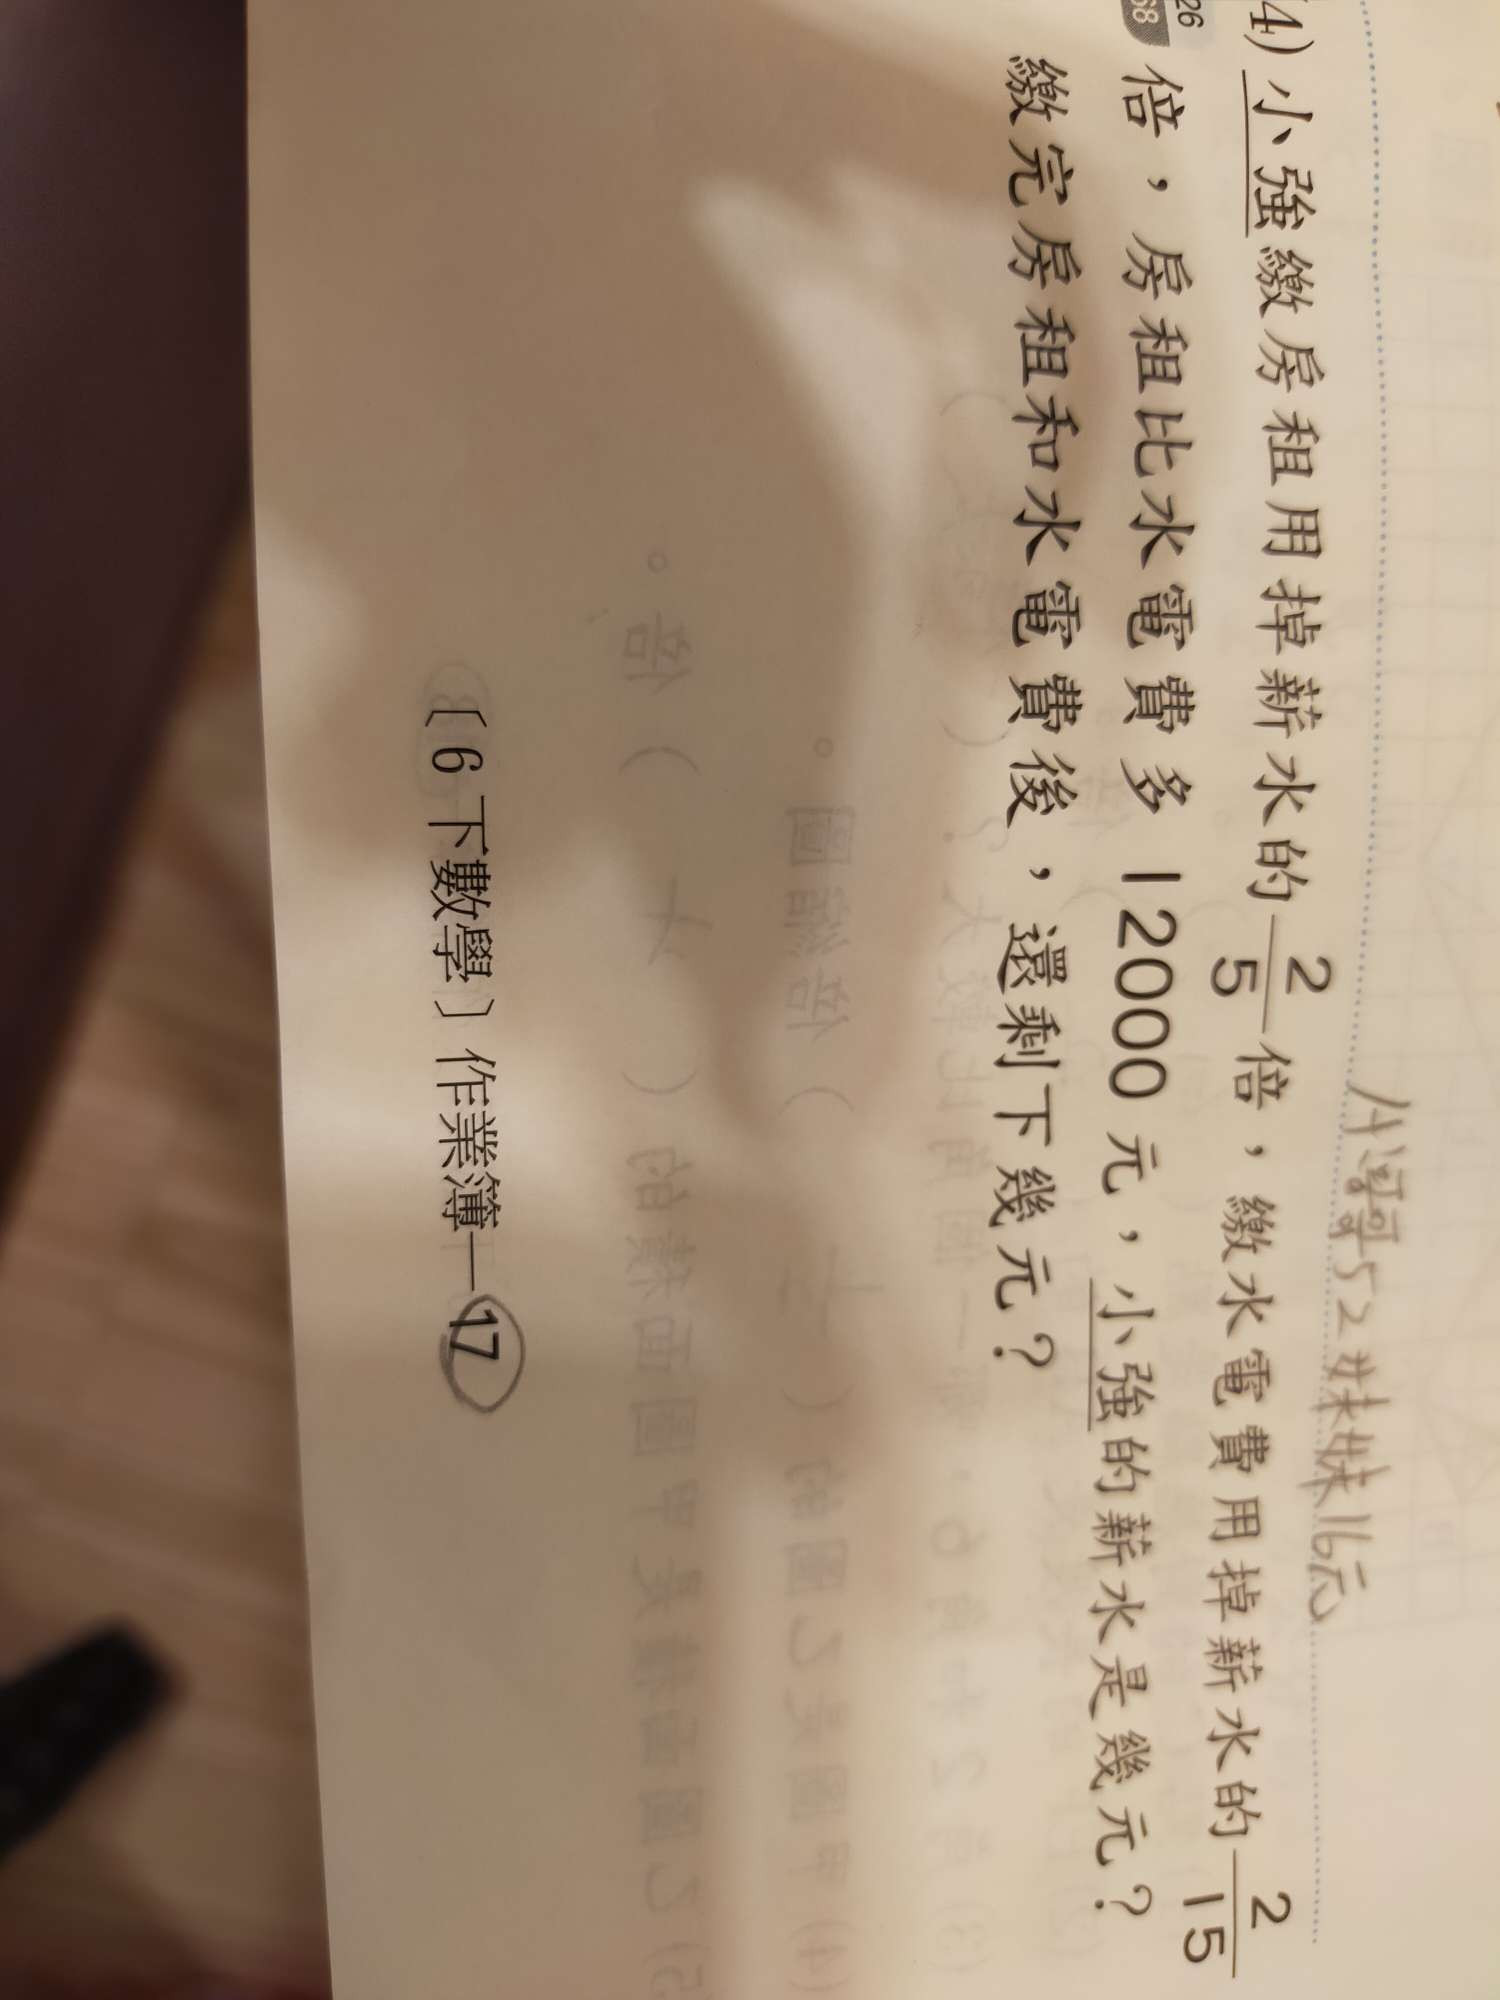 哥哥52妹妹16元
4) 小強繳房租用掉薪水的 2/5 倍,繳水電費用掉薪水的 2/15
26
68
倍,房租比水電費多 12000 元,小強的薪水是幾元?
繳完房租和水電費後,還剩下幾元?
〔6下數學〕作業簿—17